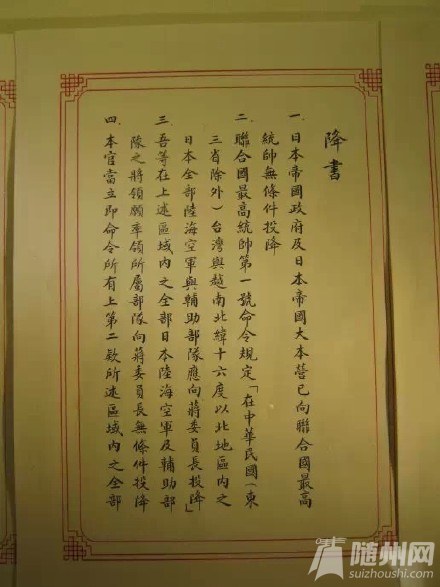 降書
一.日本帝國政府及日本帝國大本營已向聯合國最高
統帥無條件投降
二.聯合國最高統帥第一號命令規定「在中華民國(東
三省除外)台灣與越南北緯十六度以北地區內之
日本全部陸海空軍與輔助部隊應向蔣委員長投降」
三.吾等在上述區域內之全部日本陸海空軍及輔助部
隊之將領願率領所屬部隊向蔣委員長無條件投降
四.本官當立即命令所有上第二款所述區域內之全部
随州网
suizhoushi.com